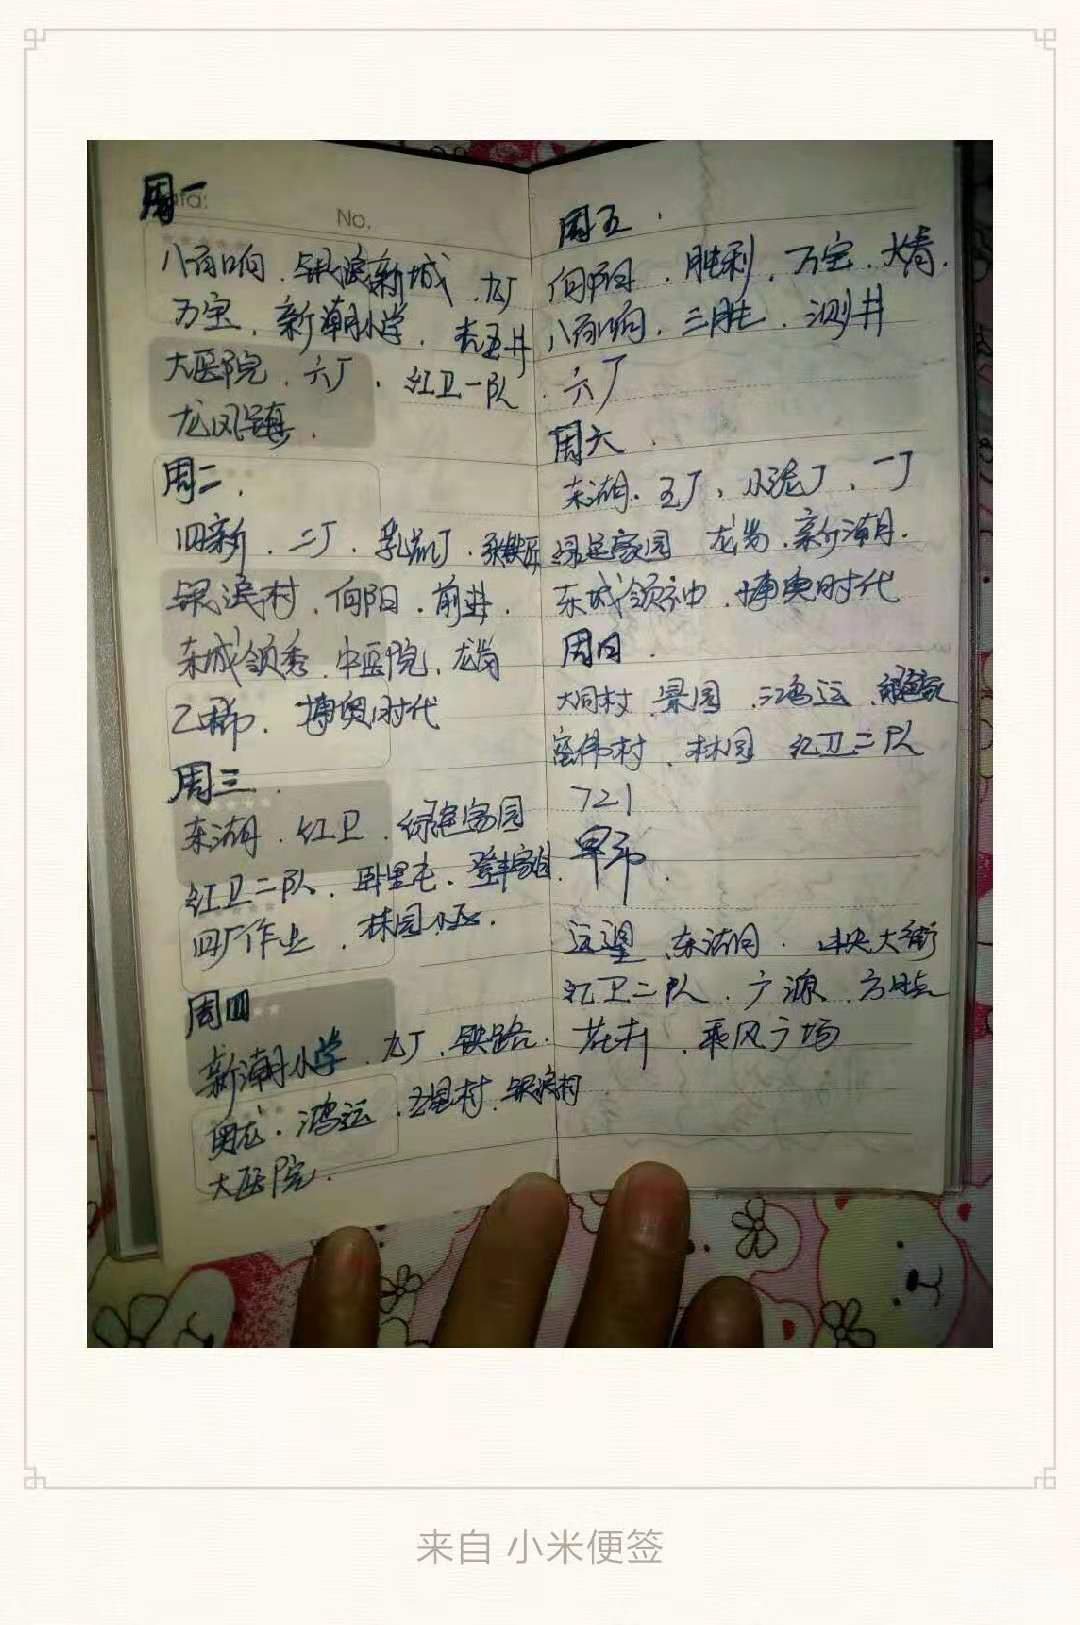 周一
No.
八百晌．银浪新城．九厂
万宝．新潮小学．杏五井
大医院．六厂．红卫一队．
龙凤镇．
周二．
旧新．二厂．乳品厂．张铁匠
银浪村．向阳．前进．
东城领秀．中医院．龙岗
乙烯．博奥时代
周三．
东湖．红卫．绿色家园
红卫二队．卧里屯．登丰家园．
四厂作业．林园小区．
周四
新潮小学．九厂．铁路．
奥龙．鸿运．五星村．银浪村
大医院．
周五．
向阳．胜利．万宝．大青．
八百晌．三胜．测井
六厂
周六．
东湖．五厂．水泥厂．一厂
绿色家园 龙岗．新潮．
东城领秀．博奥时代
周日．
大同村．景园．鸿运．绿色家
宏伟村．林园 红卫二队
721
早市．
远望．东湖．中央大街
红卫二队．广源．方晓
花卉．乘风广场
来自 小米便签